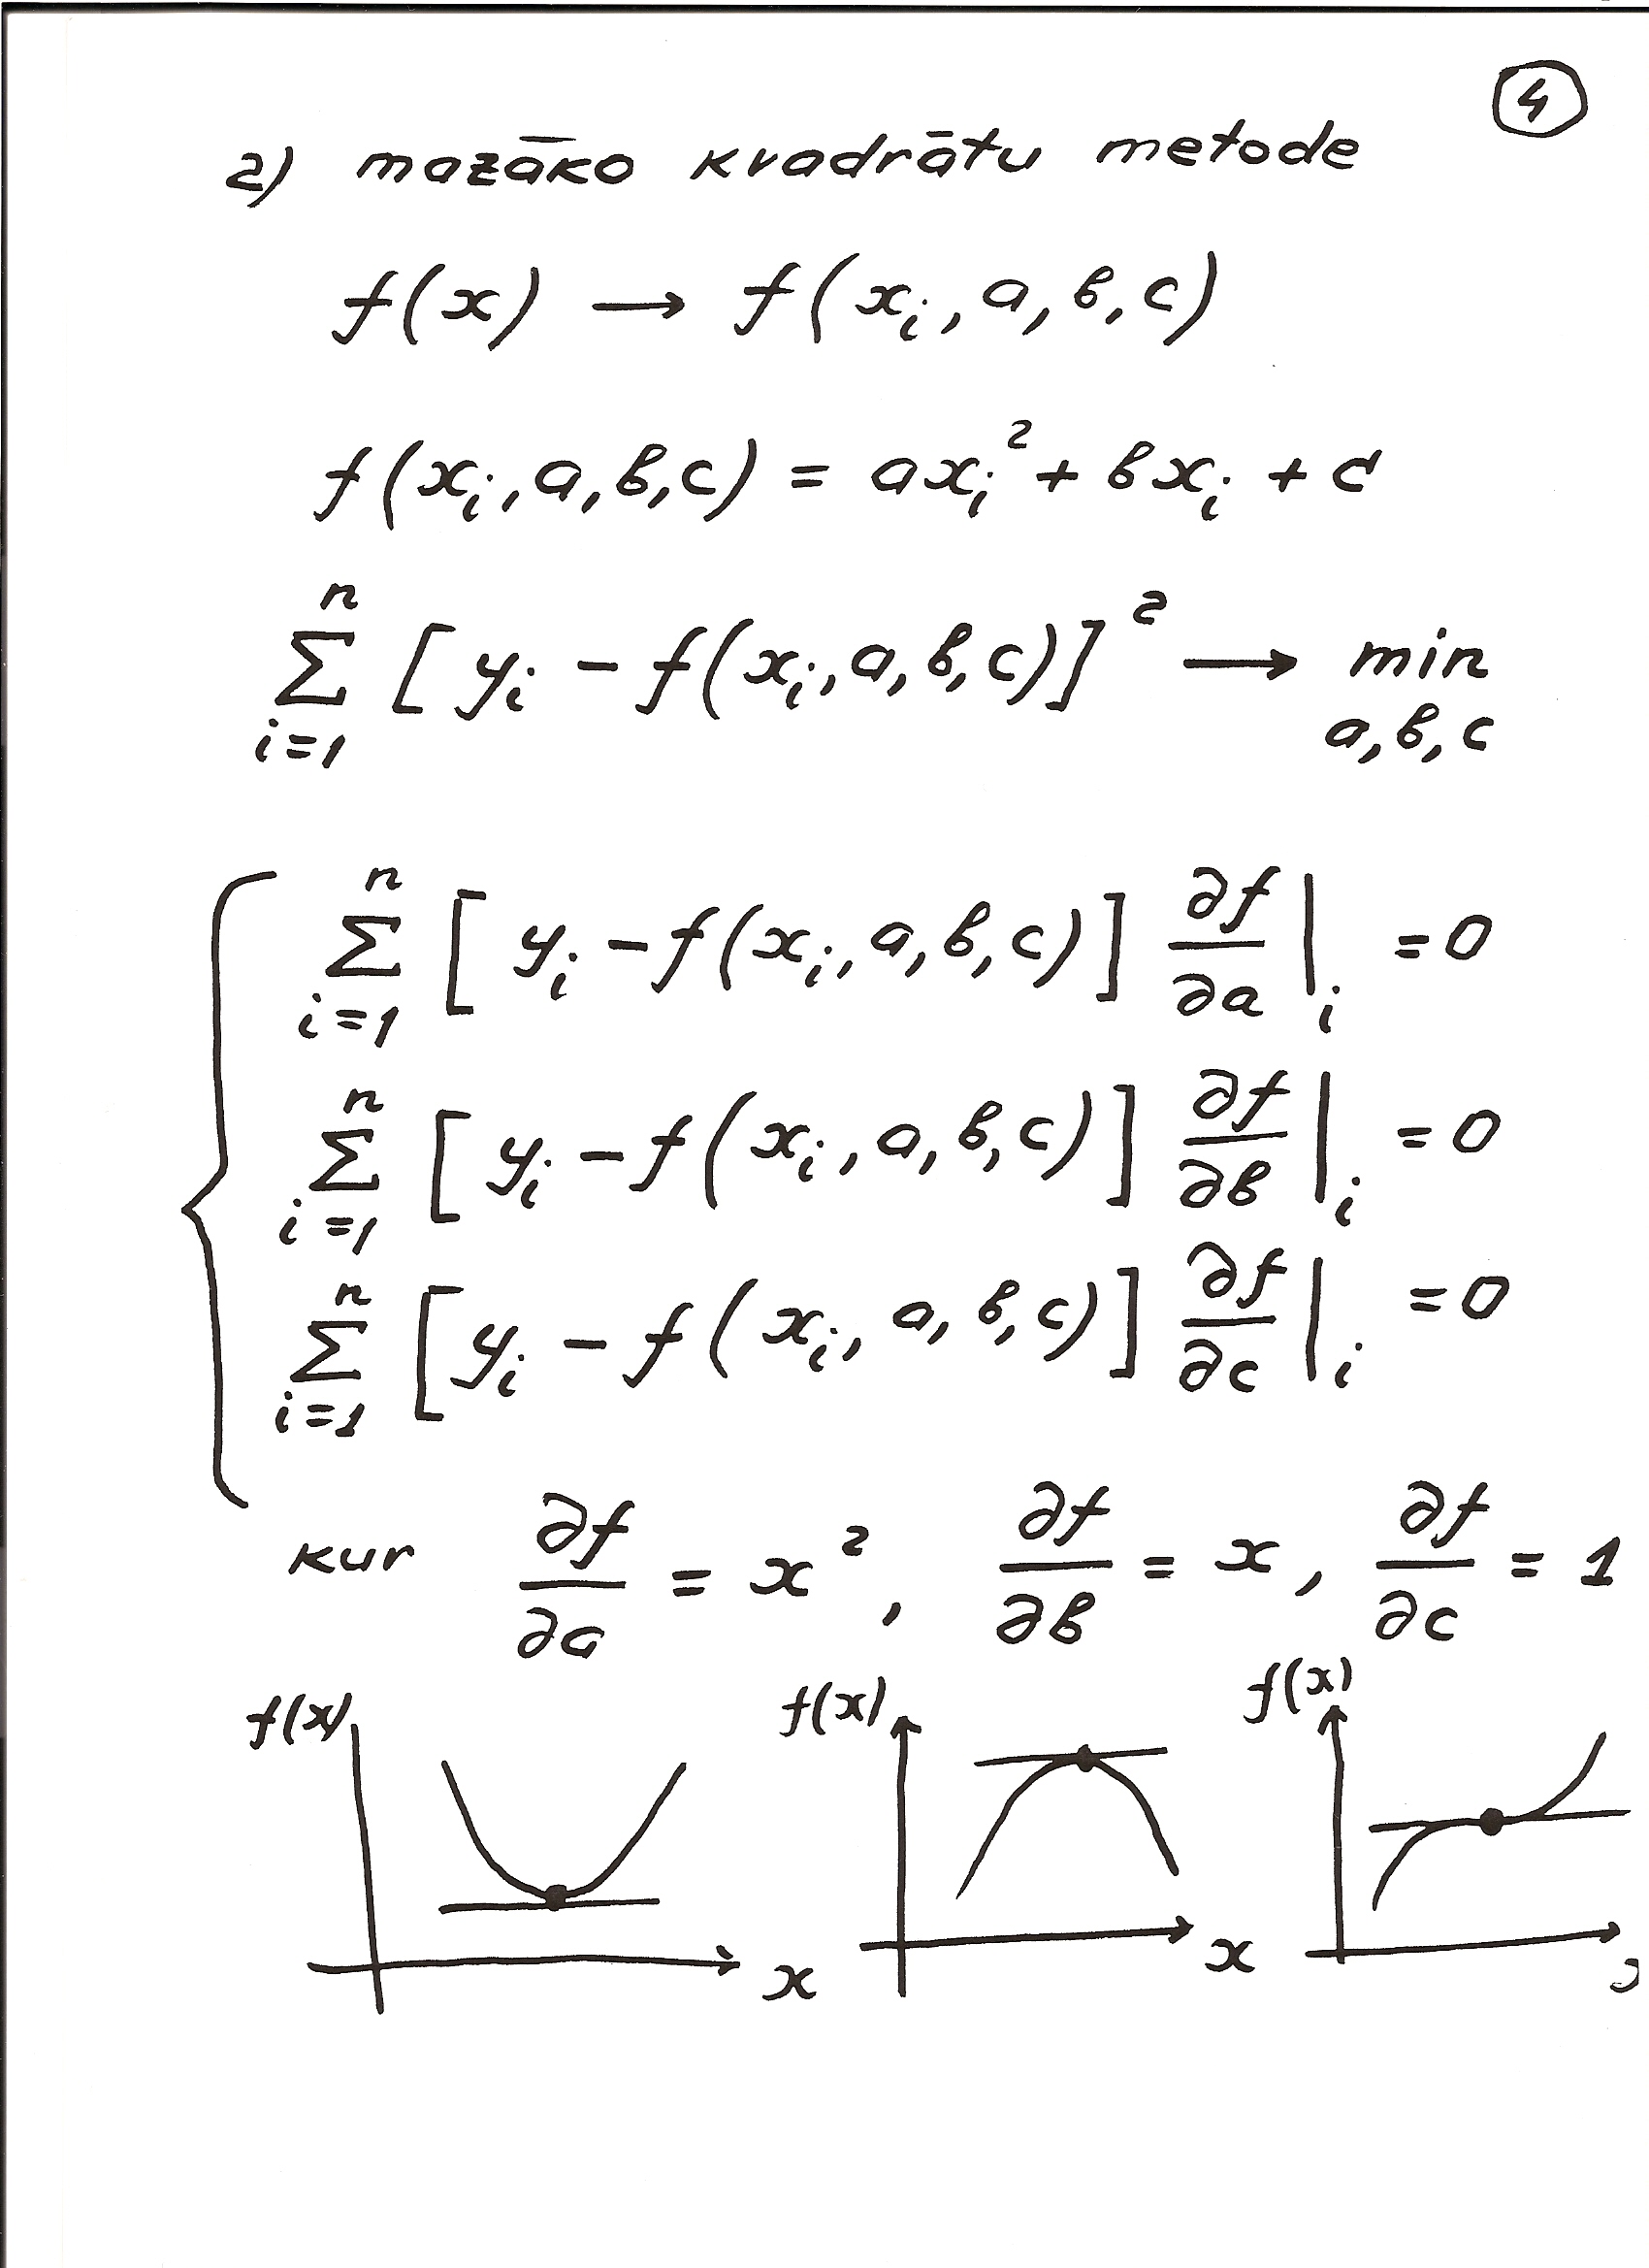 4
2) mazāko kvadrātu metode
f(x) → f(xᵢ, a, b, c)
f(xᵢ, a, b, c) = axᵢ² + bxᵢ + c
n
∑ [yᵢ − f(xᵢ, a, b, c)]² → min
i=1 a, b, c
n
∑ [yᵢ − f(xᵢ, a, b, c)] ∂f/∂a |ᵢ = 0
i=1
n
∑ [yᵢ − f(xᵢ, a, b, c)] ∂f/∂b |ᵢ = 0
i=1
n
∑ [yᵢ − f(xᵢ, a, b, c)] ∂f/∂c |ᵢ = 0
i=1
kur ∂f/∂a = x², ∂f/∂b = x, ∂f/∂c = 1
f(x) f(x) f(x)
x x